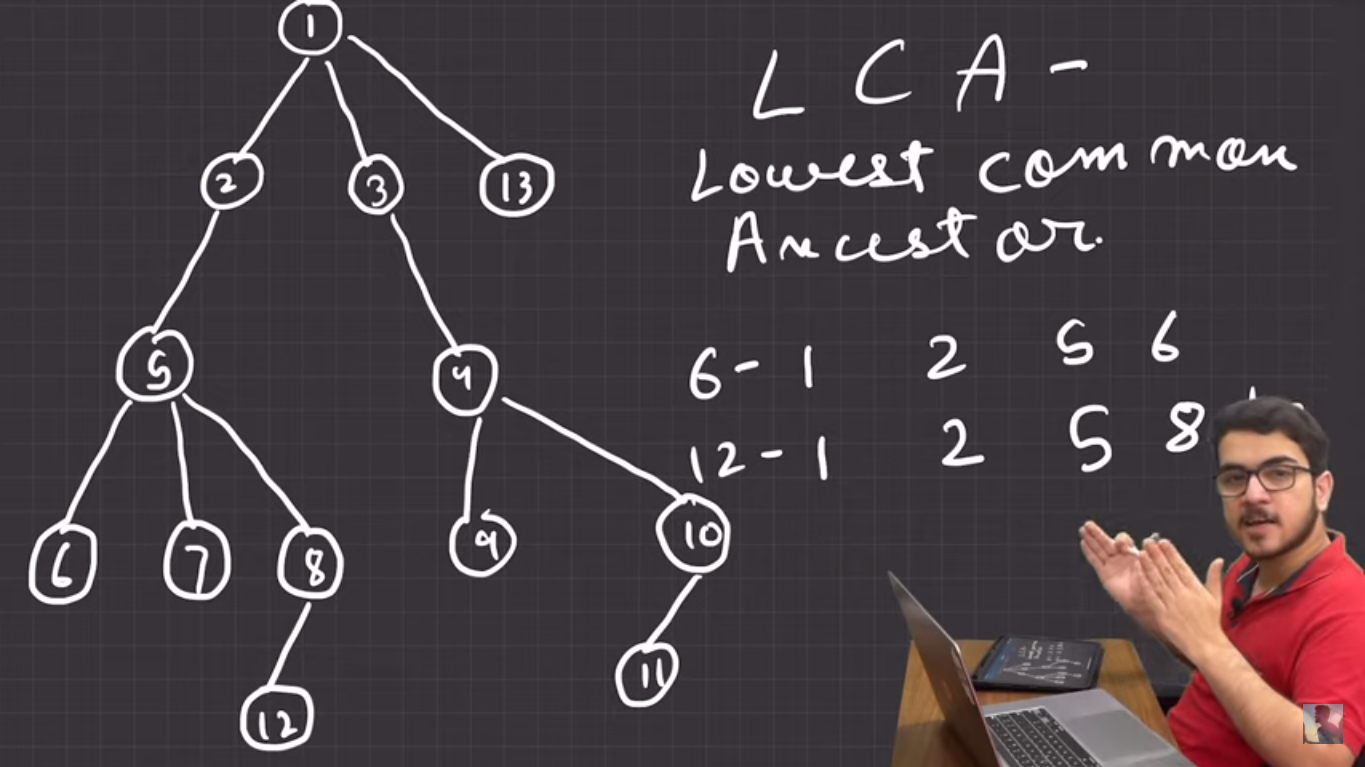 1
2 3 13
5 4
6 7 8 9 10
12 11
L C A -
Lowest common
Ancestor.
6 - 1 2 5 6
12 - 1 2 5 8